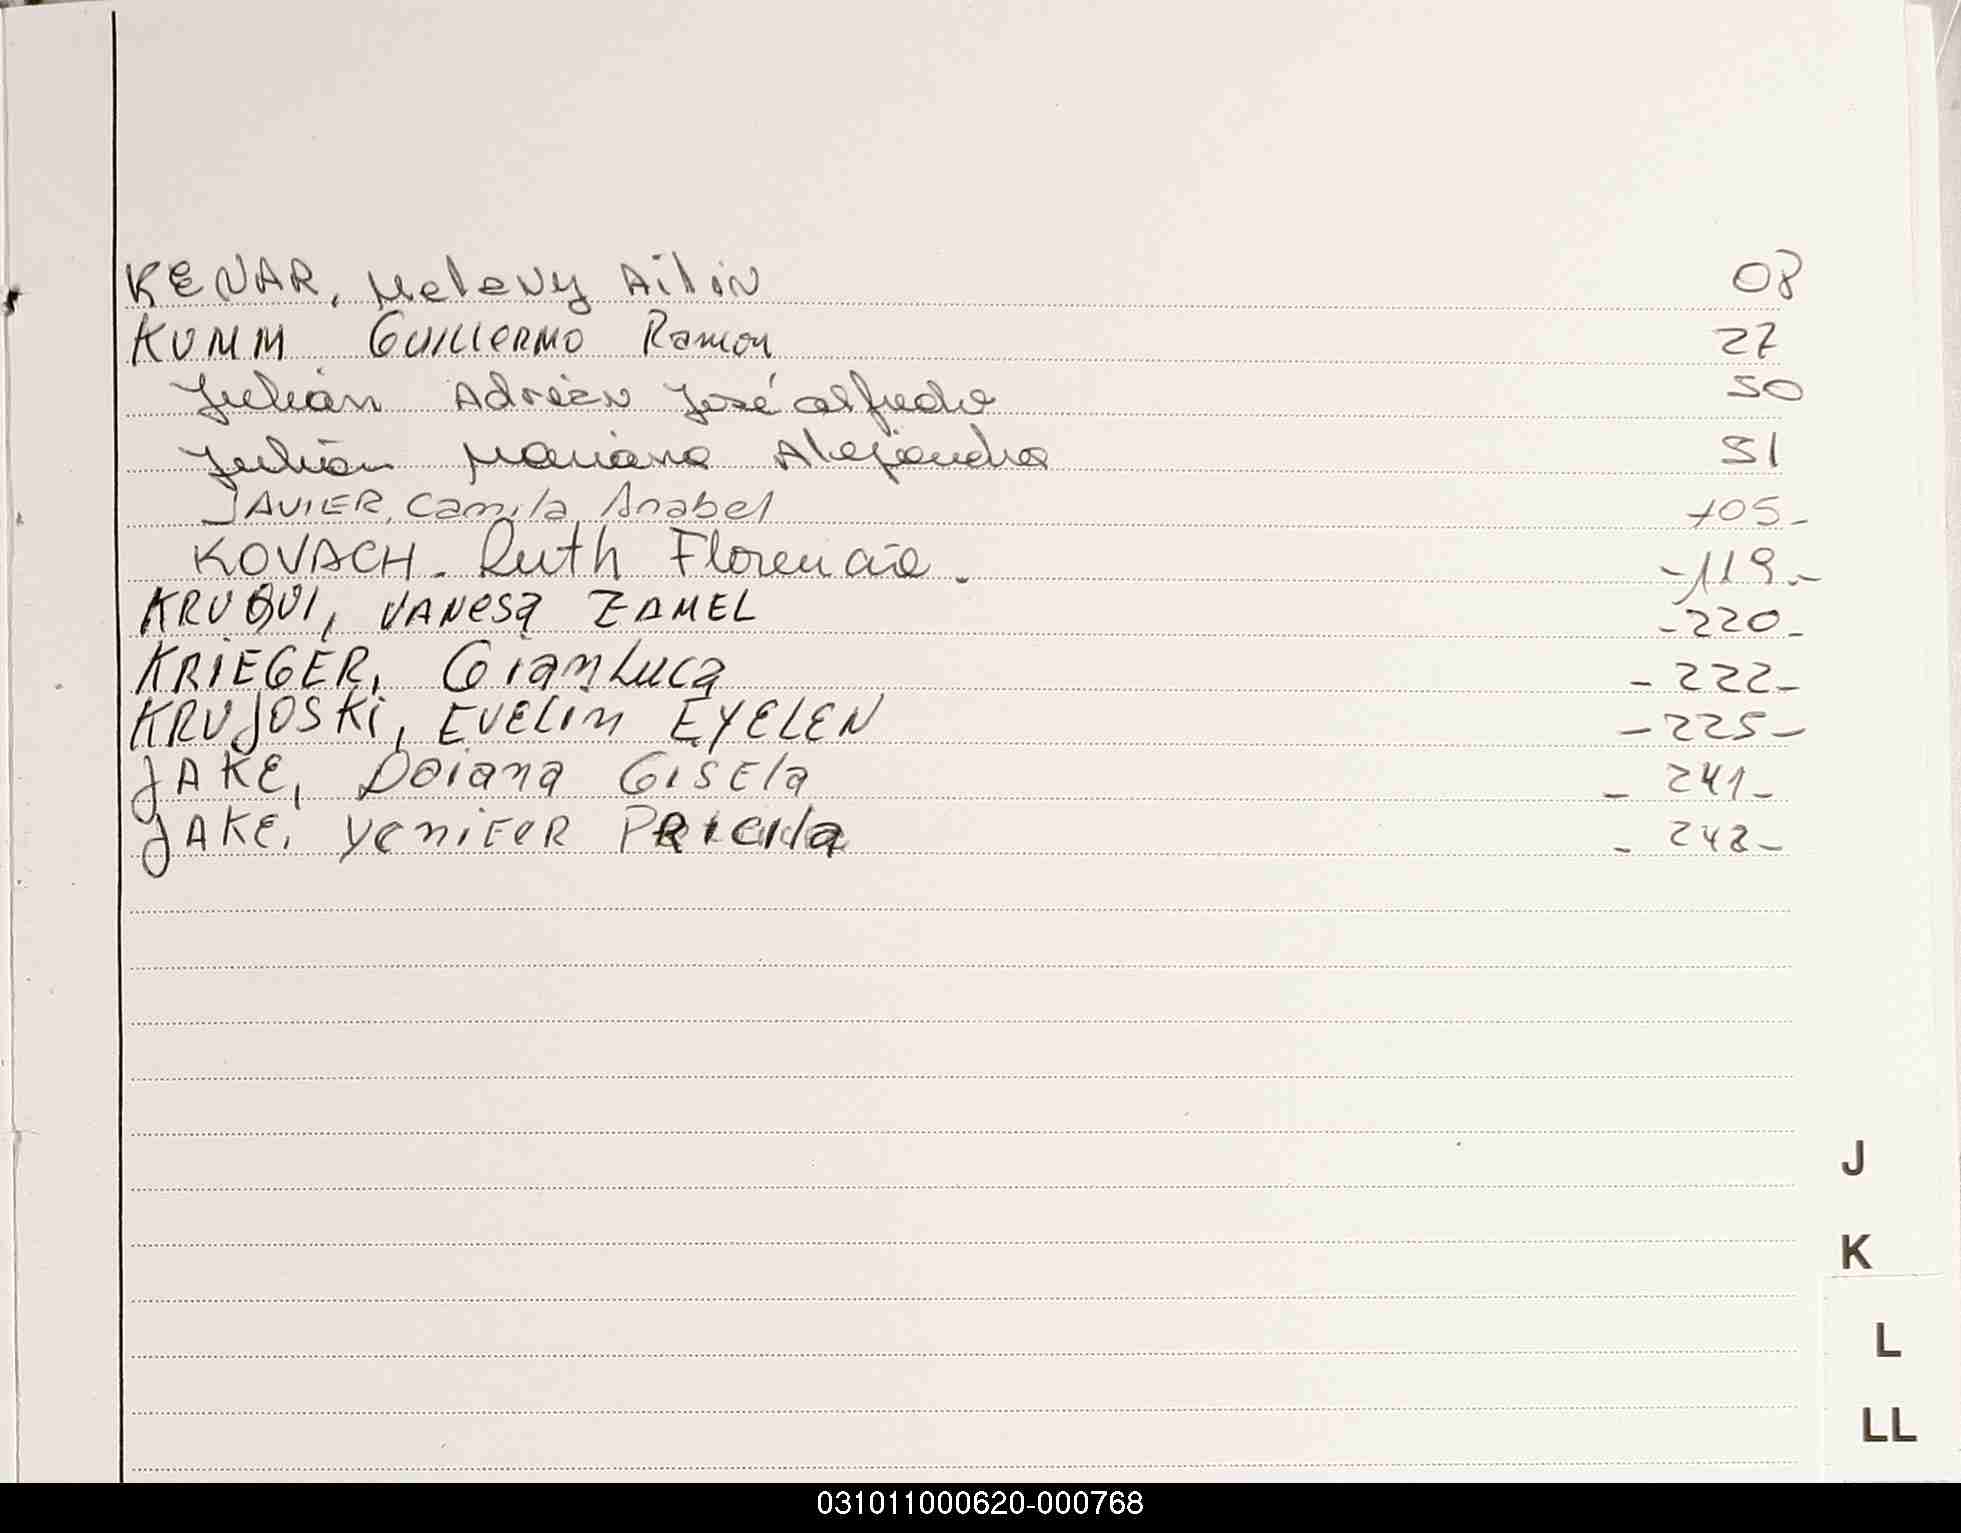 KENAR, Meleny Ailin 08
KUMM Guillermo Ramon 27
Julián Adrián José Alfredo 50
Julián Mariana Alejandra 51
JAVIER, Camila Anabel 105-
KOVACH- Ruth Florencia. -119.-
KRUQUI, VANESA ZAMEL -220-
KRIEGER, GianLuca -222-
KRUJOSKi, EVELin EYELEN -225-
JAKE, Daiana GISEla - 241-
JAKE, YeniFER PRicila - 242-
J
K
L
LL
031011000620-000768